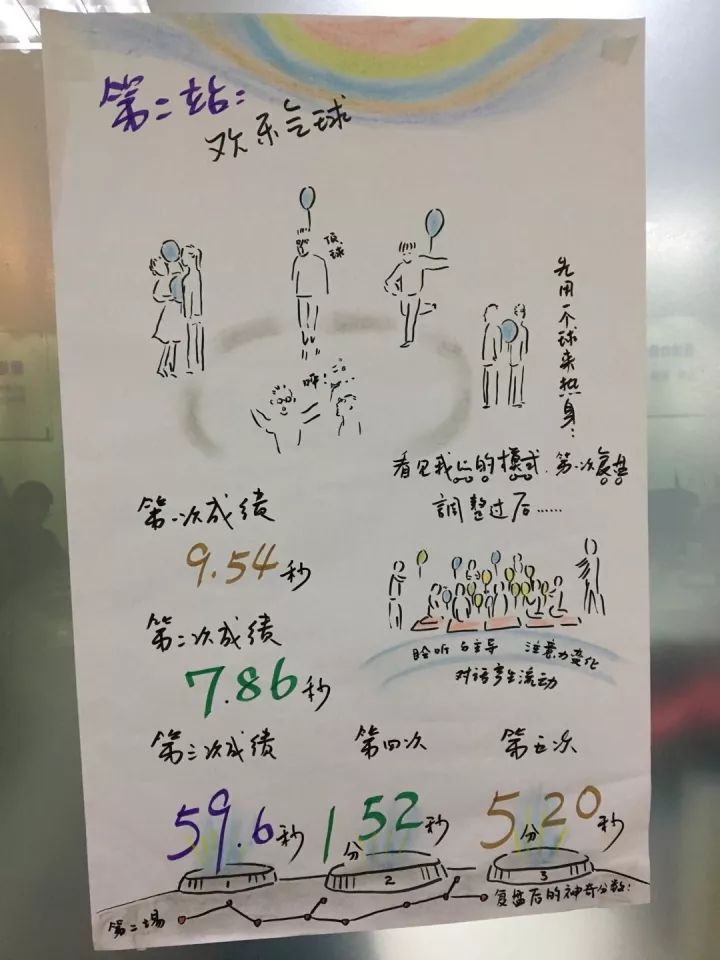 第二站：
欢乐气球
顶球
哗！
先用一个球来热身：
看见我们的模式，第一次复盘
調整过后……
第一次成绩
9.54秒
第二次成绩
7.86秒
聆听与主导 注意力变化
对话产生流动
第三次成绩
第四次
第五次
59.6秒
1分52秒
5分20秒
1
2
3
第二場
复盘后的神奇分数：